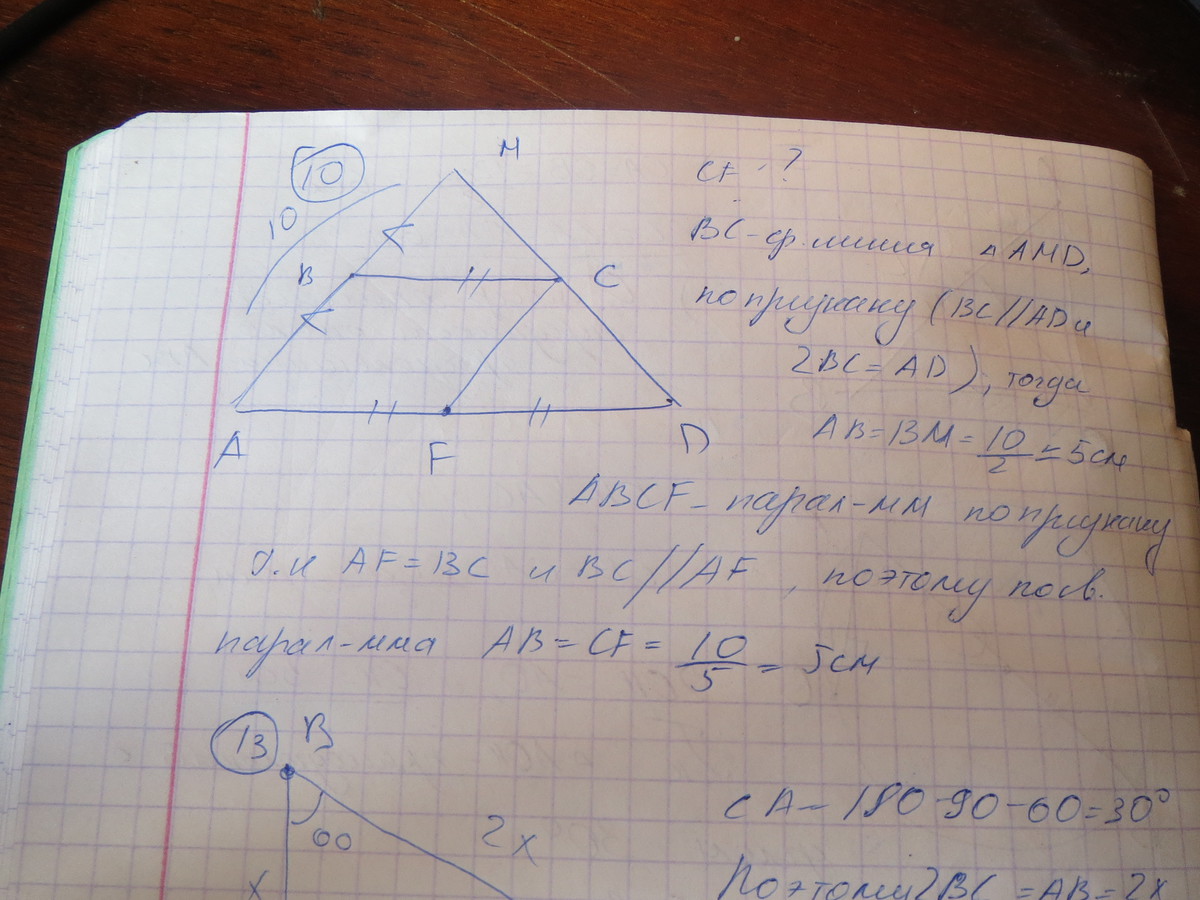 10
10
M
B
C
A
F
D
CF - ?
BC - ср. линия △ AMD,
по признаку (BC // AD и
2BC = AD), тогда
AB = BM = 10/2 = 5 см
ABCF - парал-мм по признаку
т.к AF = BC и BC // AF, поэтому по св.
парал-мма AB = CF = 10/5 = 5 см
13
B
60
2x
x
∠A - 180-90-60=30°
Поэтому 2BC = AB = 2x